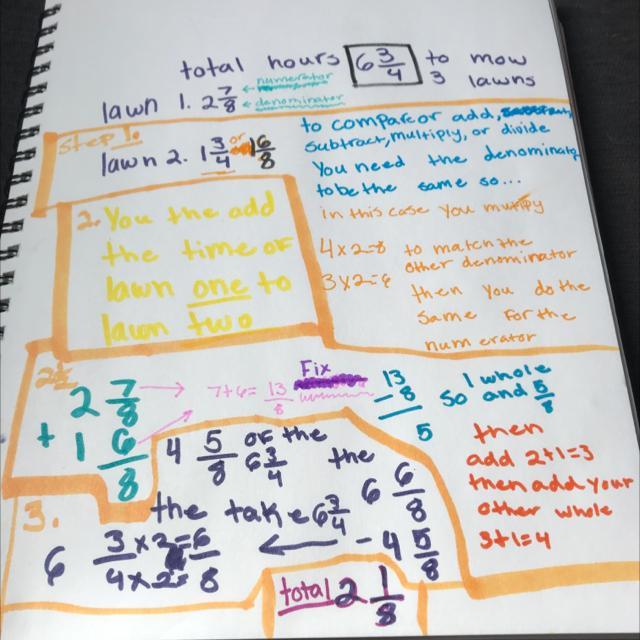 total hours 6 3/4 to mow
3 lawns
lawn 1. 2 7/8 ← numerator
← denominator
Step 1.
lawn 2. 1 3/4 or 1 6/8
to compare or add,
subtract, multiply, or divide
You need the denominator
to be the same so...
in this case you multiply
4x2=8 to match the
other denominator
3x2=6
then you do the
same for the
numerator
2. You the add
the time of
lawn one to
lawn two
2 1/2
2 7/8
+ 1 6/8
8
7+6= 13/8
Fix
13
- 8
5
1 whole
so and 5/8
then
add 2+1=3
then add your
other whole
3+1=4
4 5/8 of the
6 3/4
3.
the take 6 3/4 the
6 3x2=6
4x2=8
6 6/8
← - 4 5/8
total 2 1/8